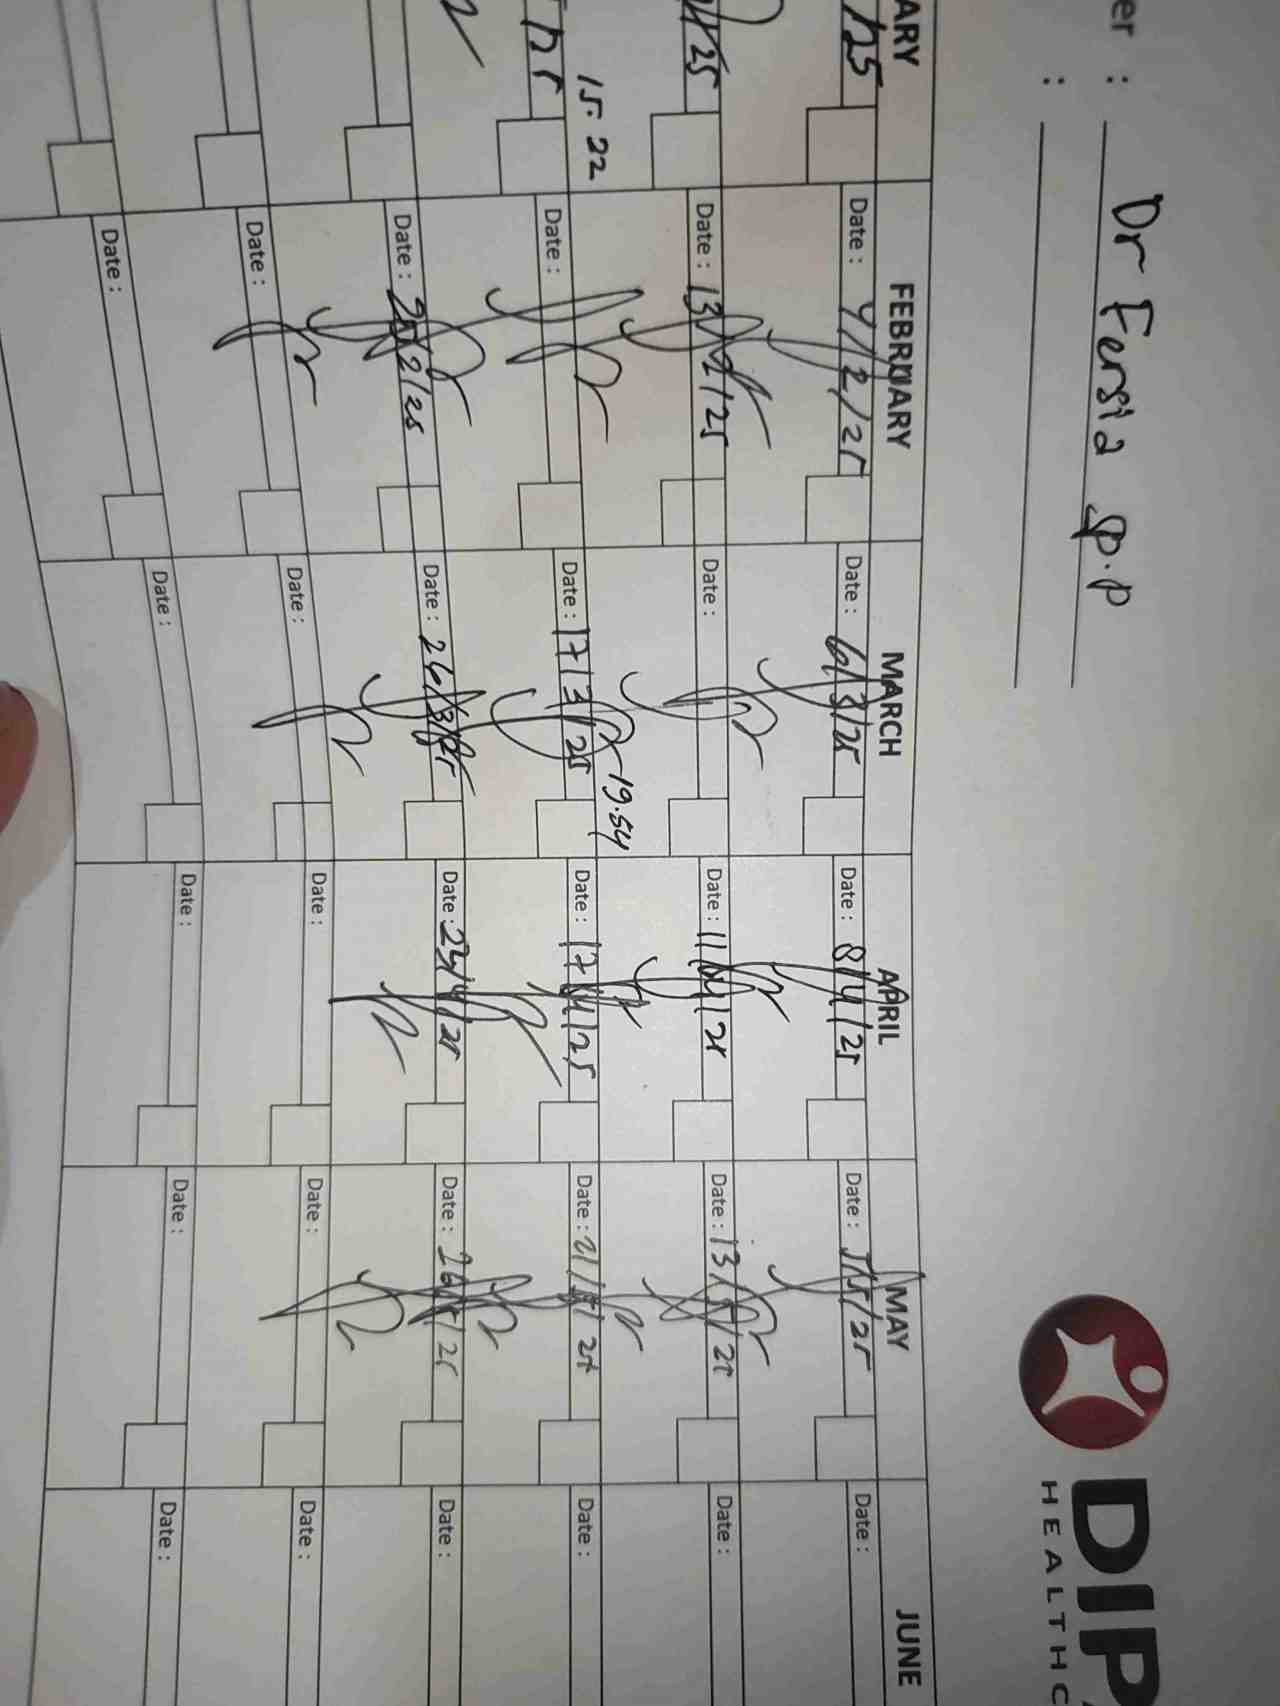 er : Dr Fersia sp.p
:
DIP
HEALTHC
ARY FEBRUARY MARCH APRIL MAY JUNE
/25 Date : 4/2/25 Date : 6/3/25 Date : 8/4/25 Date : 5/5/25 Date :
/25 Date : 13/2/25 Date : Date : 11/4/25 Date : 13/5/25 Date :
15.22 19.54
Date : Date : 17/3/25 Date : 17/4/25 Date : 21/5/25 Date :
Date : 20/2/25 Date : 26/3/25 Date : 23/4/25 Date : 26/5/25 Date :
Date : Date : Date : Date : Date :
Date : Date : Date : Date : Date :